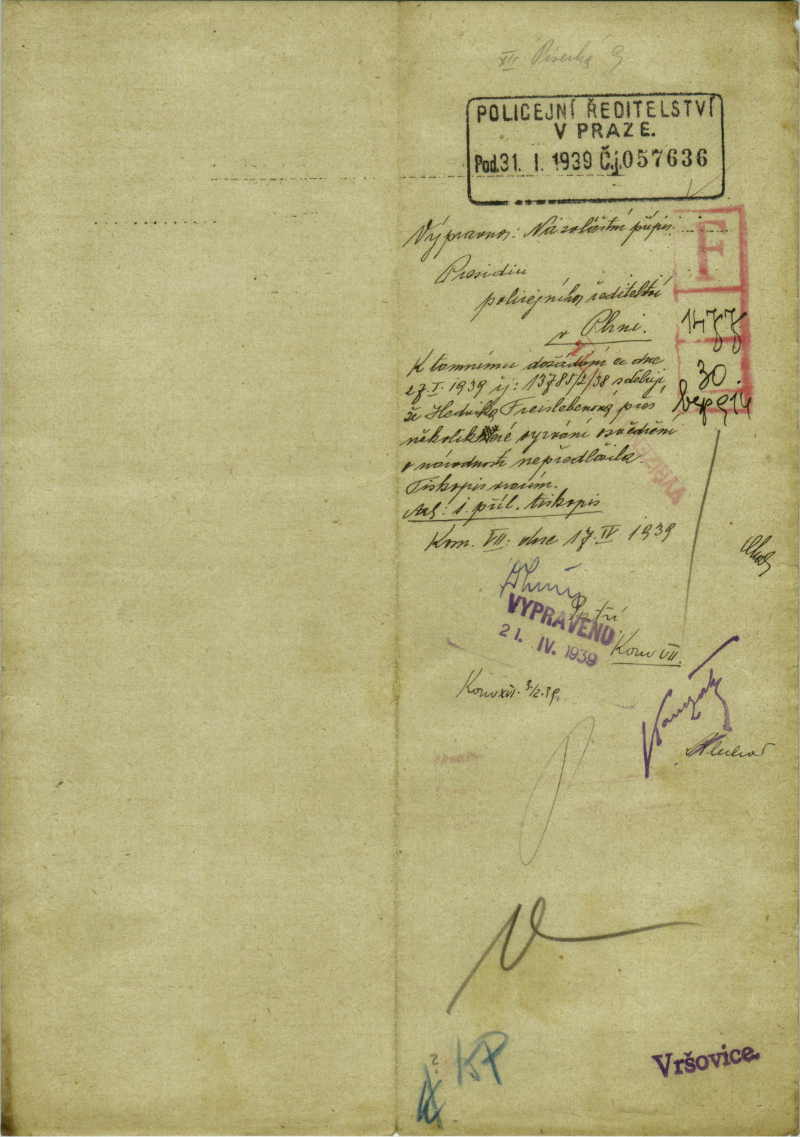 XIV
POLICEJNÍ ŘEDITELSTVÍ
V PRAZE.
Pod. 31. I. 1939 Č.j. 057636
F
Výpravna: Na zvláštní přípis
Presidiu
policejního ředitelství
v Plzni.
1477
30
K tamnímu dožádání ze dne
27.I. 1939 čj: 13785/2/38 sděluji,
že Hedvika Freislebenová přes
několikeré vyzvání osvědčení
o národnosti nepředložila.
Tiskopis vracím.
1 příl. tiskopis
Kom. VII. dne 17.IV 1939
VYPRAVENO
21. IV. 1939
Patří
Kom VII.
Kom XIII. 3/2.39.
KP
Vršovice.